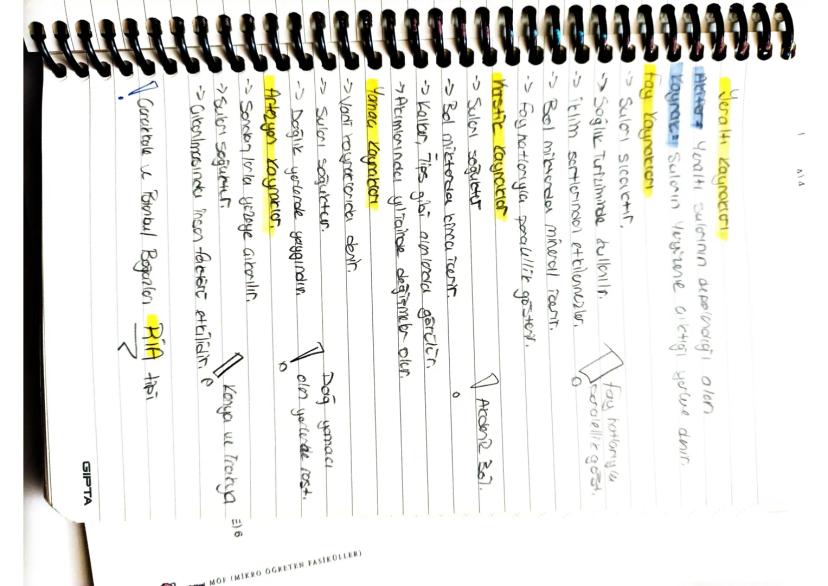 Yeraltı Kaynakları
Akifer: Yeraltı sularının depolandığı alan
Kaynak: Suların Yeryüzüne çıktığı yerlere denir.
Fay Kaynakları
-> Suları sıcaktır.
-> Sağlık Turizminde kullanılır.
-> İklim şartlarından etkilenmezler.
-> Bol miktarda mineral içerir.
-> Fay hatlarıyla paralellik gösterir.
Fay hatlarıyla
paralellik göst.
Karstik Kaynaklar
-> Suları soğuktur
-> Bol miktarda kireç içerir.
-> Kalker, Jips gibi alanlarda görülür.
-> Akımlarında yıl içinde değişmeler olur.
Akdeniz Böl.
Yamaç Kaynakları
-> Vadi kaynakları da denir.
-> Suları soğuktur.
-> Dağlık yerlerde yaygındır.
Dağ yamacı
olan yerlerde rast.
Artezyen Kaynaklar.
-> Sondajlarla yüzeye çıkarılır.
-> Suları soğuktur.
-> Çıkarılmasında insan faktörü etkilidir.
Konya ve Trakya
! Çanakkale ve İstanbul Boğazları RİA tipi
GIPTA
MOF (MİKRO ÖĞRETEN FASİKÜLLER)